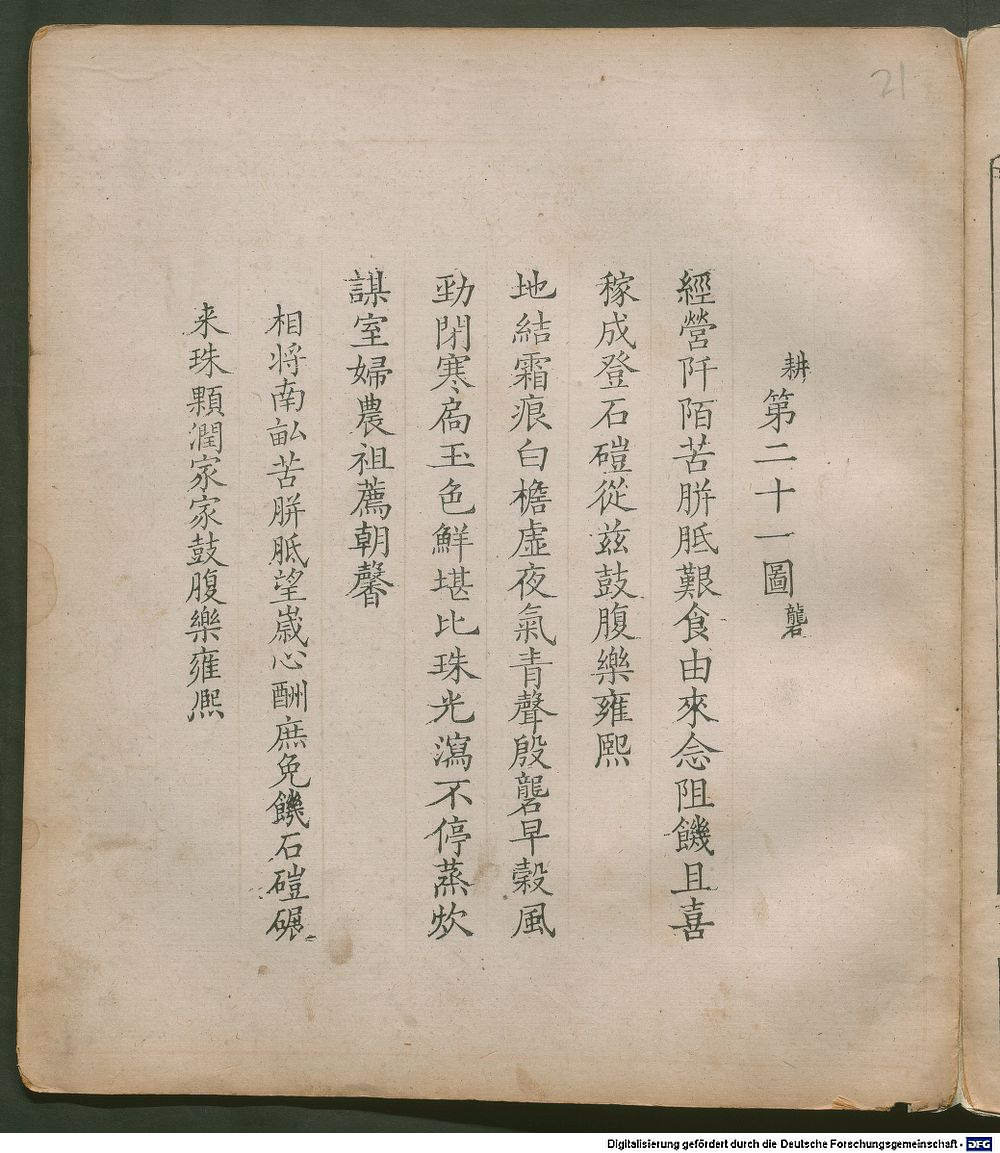 21
耕 第二十一圖 礱
經營阡陌苦胼胝艱食由來念阻饑且喜
稼成登石磑從茲鼓腹樂雍熙
地結霜痕白檐虛夜氣青聲殷礱早穀風
勁閉寒扃玉色鮮堪比珠光瀉不停蒸炊
謀室婦農祖薦朝馨
相将南畝苦胼胝望嵗心酬庶免饑石磑碾
来珠顆潤家家鼓腹樂雍熈
Digitalisierung gefördert durch die Deutsche Forschungsgemeinschaft - DFG